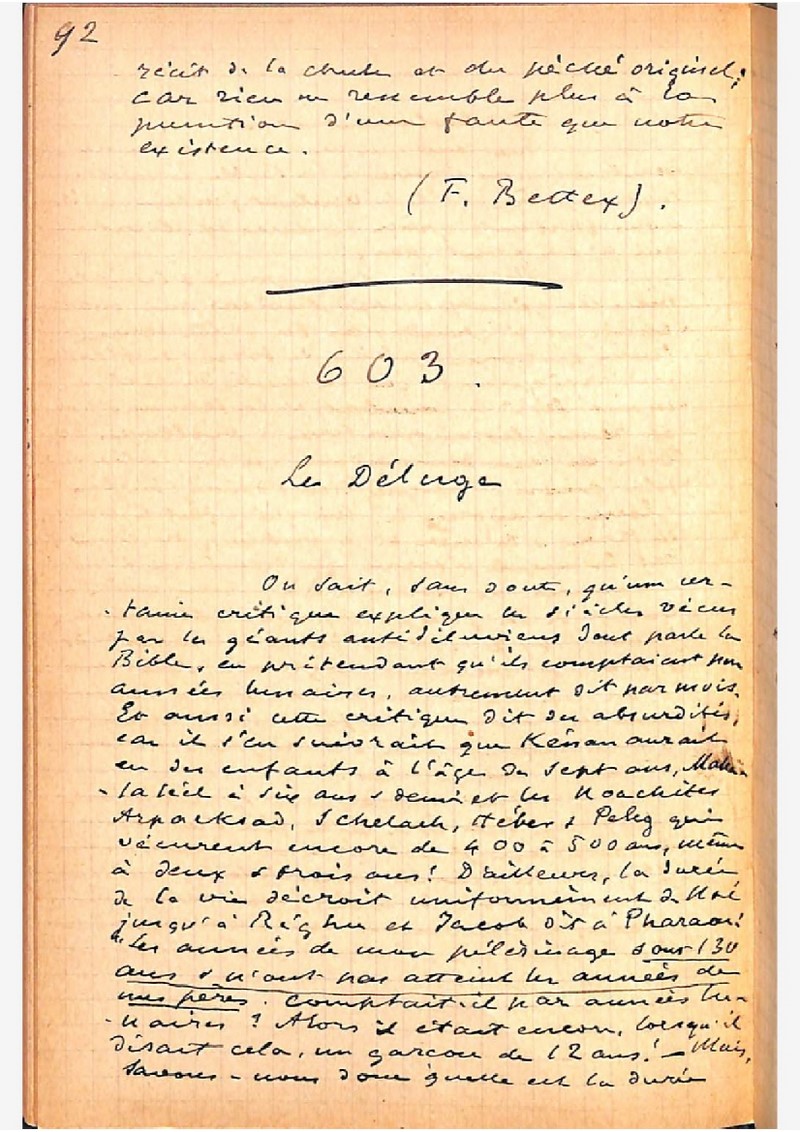 92
récit de la chute et du péché originel;
car rien ne ressemble plus à la
punition d'une faute que notre
existence.
(F. Bettex).
603.
Le Déluge
On sait, sans doute, qu'une cer-
-taine critique explique les siècles vécus
par les géants antédiluviens dont parle la
Bible, en prétendant qu'ils comptaient par
années lunaires, autrement dit par mois.
Et aussi cette critique dit des absurdités,
car il s'en suivrait que Kénan aurait
eu des enfants à l'âge de sept ans, Maha-
-laléel à six ans & demi et les Noachites
Arpacksad, Schelach, Héber & Peleg qui
vécurent encore de 400 à 500 ans, même
à deux & trois ans! D'ailleurs, la durée
de la vie décroit uniformément de Noé
jusqu'à Réghu et Jacob dit à Pharaon:
"Les années de mon pélérinage sont 130
ans & n'ont pas atteint les années de
mes pères. Comptait-il par années lu-
-naires? Alors il était encore, lorsqu'il
disait cela, un garçon de 12 ans! – Mais,
savons-nous donc quelle est la durée